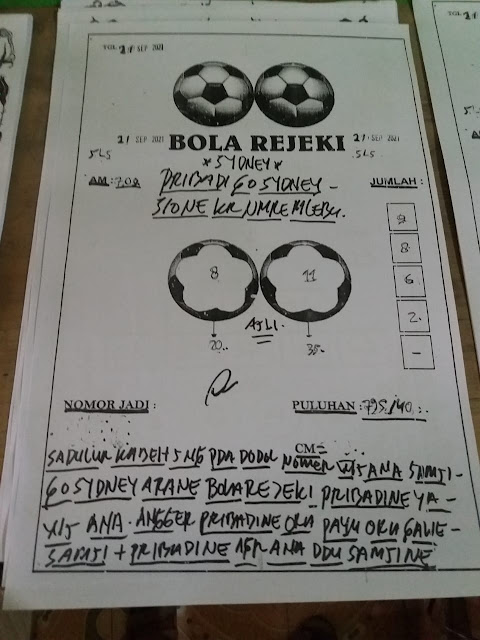 TGL. 21 SEP 2021
21 SEP 2021 BOLA REJEKI 21 SEP 2021
SLS SLS
*SYDNEY*
AM : 708 PRIBADI GO SYDNEY - JUMLAH :
9
8
6
2
-
8 11
ASLI.
20.. 35..
NOMOR JADI : PULUHAN : 795/140..
CM=
SADULUR KABEH SNG PDA DODOL NOMER WIS ANA SAMJI-
GO SYDNEY ARANE BOLA REJEKI PRIBADINE YA-
WIS ANA. ANGGER PRIBADINE ORA PAYU ORA GAWE-
SAMJI + PRIBADINE ANA DDU SAMJINE